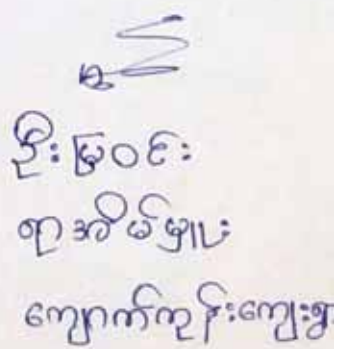 ဦးမြဝင်း
ရာအိမ်မှူး
ကျောက်ကုန်းကျေးရွာ